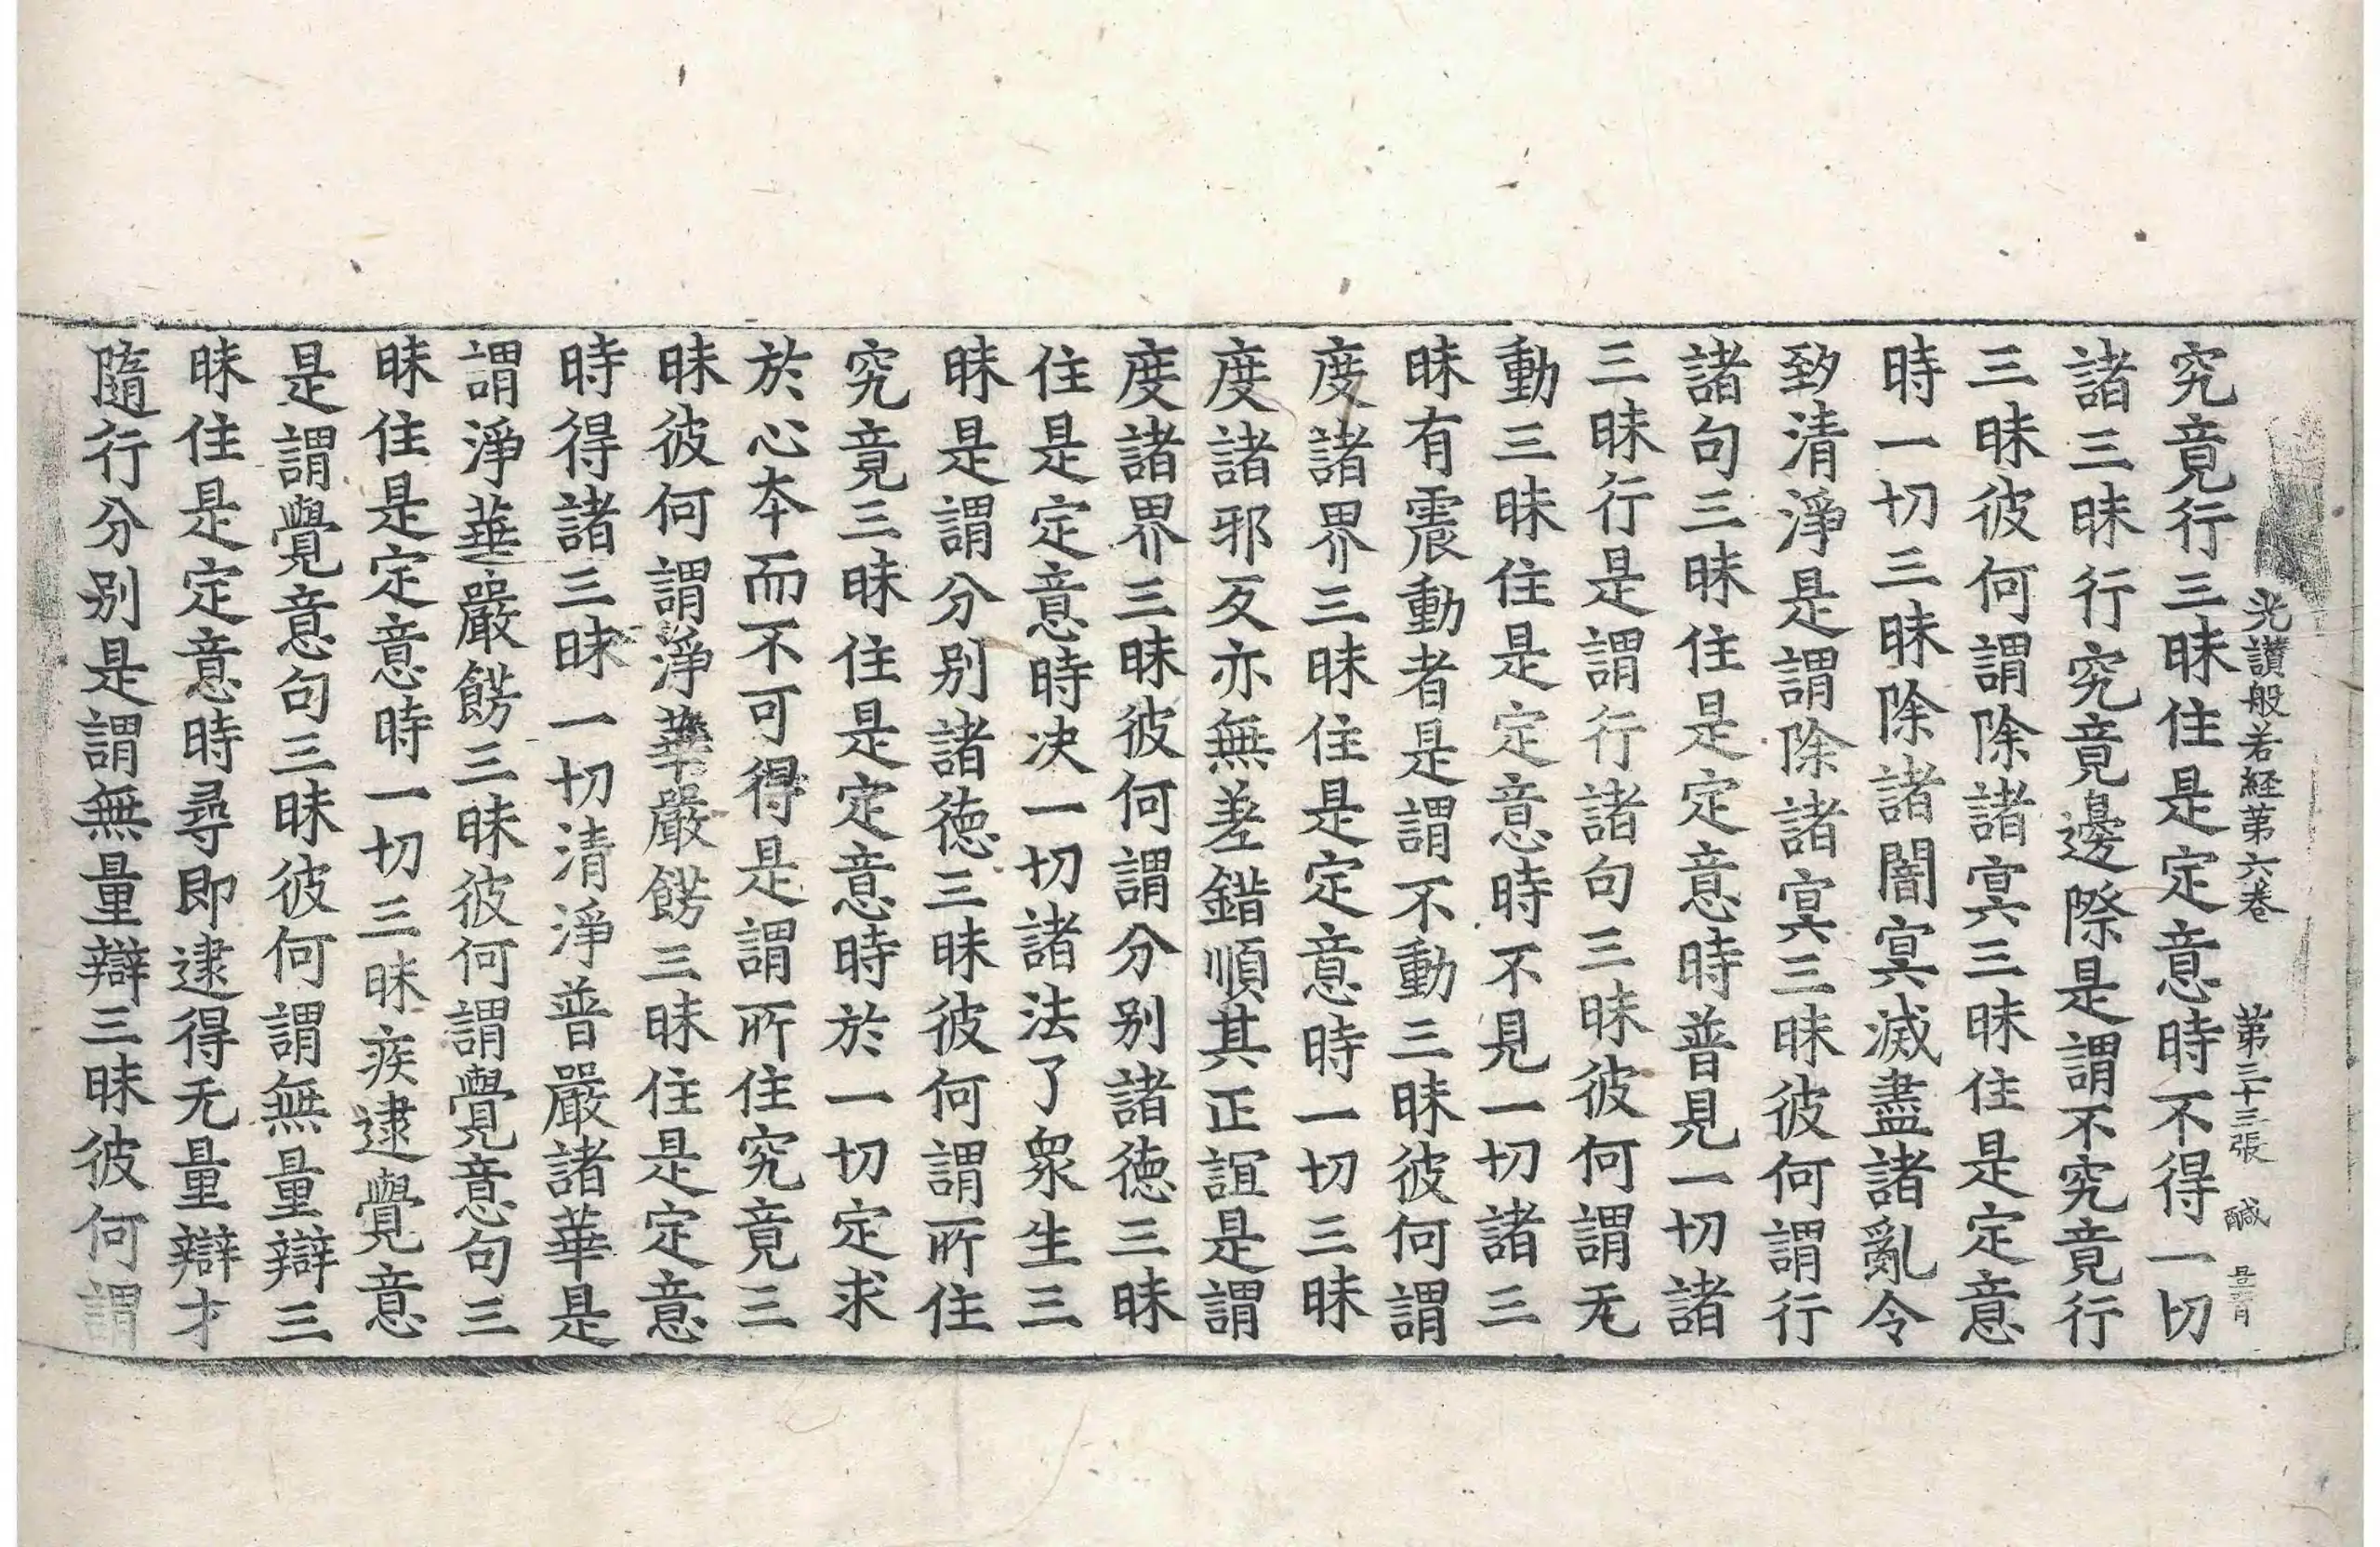 光讃般若経苐六巻 苐三十三張 鹹
究竟行三昧住是定意時不得一切
諸三昧行究竟邊際是謂不究竟行
三昧彼何謂除諸㝠三昧住是定意
時一切三昧除諸闇㝠滅盡諸亂令
致清淨是謂除諸㝠三昧彼何謂行
諸句三昧住是定意時普見一切諸
三昧行是謂行諸句三昧彼何謂无
動三昧住是定意時不見一切諸三
昧有震動者是謂不動三昧彼何謂
度諸界三昧住是定意時一切三昧
度諸邪反亦無差錯順其正誼是謂
度諸界三昧彼何謂分别諸徳三昧
住是定意時决一切諸法了衆生三
昧是謂分别諸徳三昧彼何謂所住
究竟三昧住是定意時於一切定求
於心夲而不可得是謂所住究竟三
昧彼何謂淨華嚴餝三昧住是定意
時得諸三昧一切清淨普嚴諸華是
謂淨華嚴餝三昧彼何謂覺意句三
昧住是定意時一切三昧疾逮覺意
是謂覺意句三昧彼何謂無量辯三
昧住是定意時尋即逮得无量辯才
隨行分别是謂無量辯三昧彼何謂